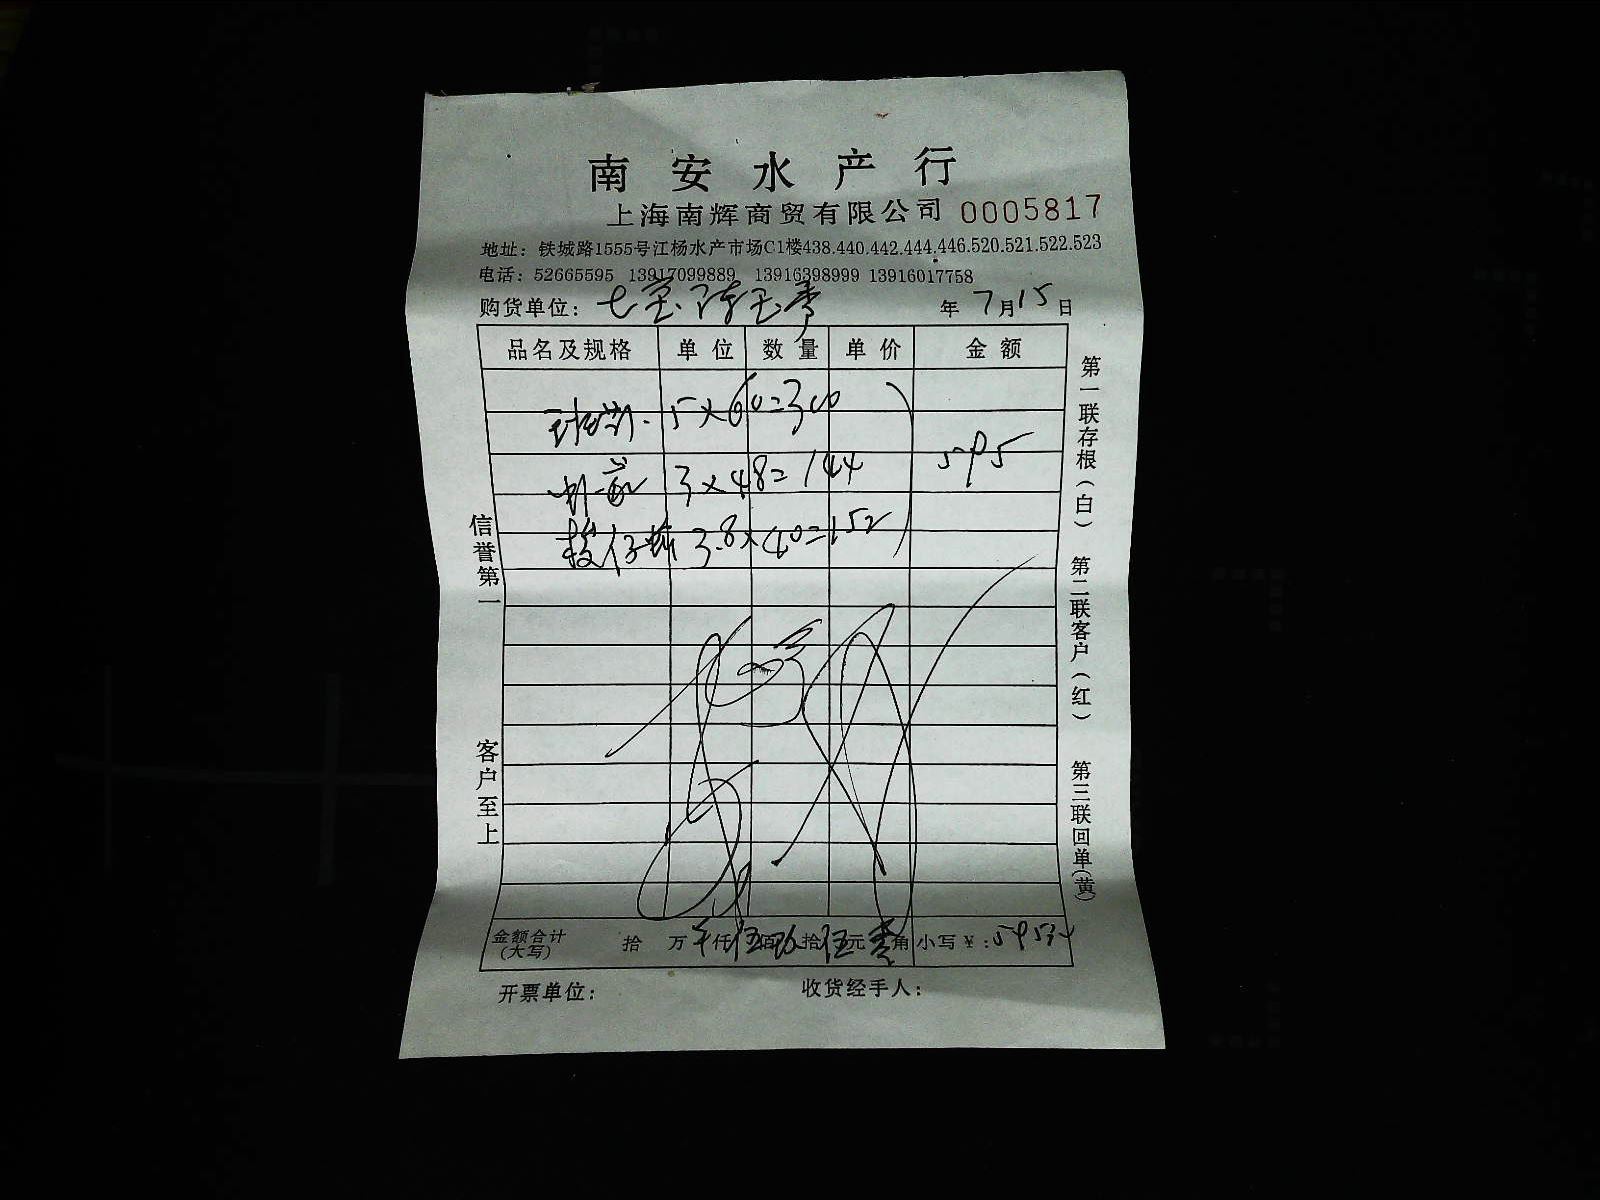 南安水产行
上海南辉商贸有限公司 0005817
地址：铁城路1555号江杨水产市场C1楼438.440.442.444.446.520.521.522.523
电话：52665595 13917099889 13916398999 13916017758
购货单位：七宝 陈玉秀 年 7月15日
品名及规格 单位 数量 单价 金额
5×60=300
3×48=144 595
3.8×40=152
金额合计（大写） 拾 万 仟伍佰玖拾伍元 角 小写￥：595元
开票单位： 收货经手人：
信誉第一 客户至上
第一联存根（白） 第二联客户（红） 第三联回单（黄）